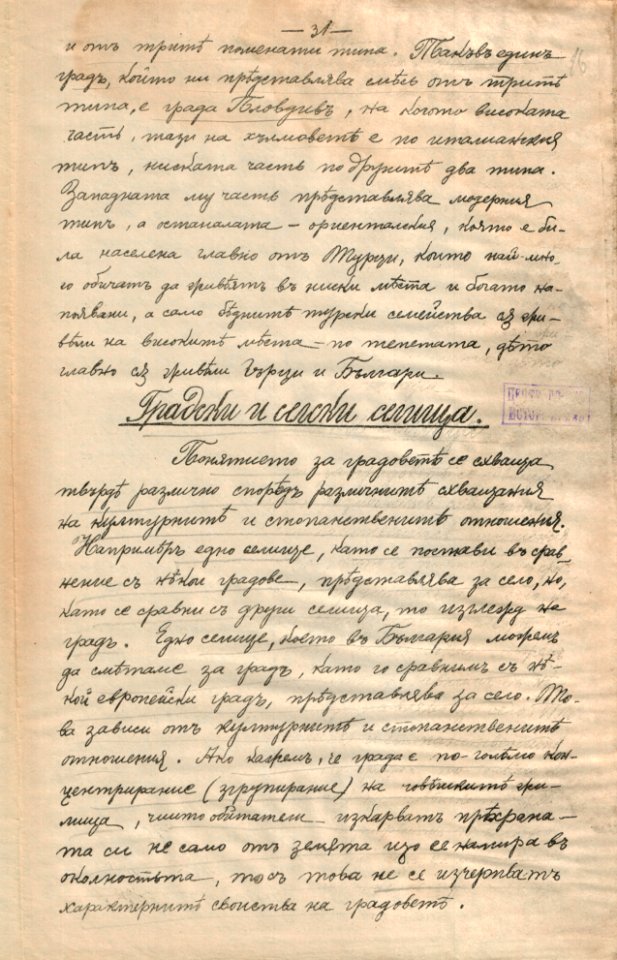 — 31 —
16
и отъ тритѣ поменати типа. Такъвъ единъ
градъ, който ни прѣдставлява смѣсь отъ тритѣ
типа, е града Пловдивъ, на когото високата
часть, тази на хълмоветѣ е по италианския
типъ, ниската часть по другитѣ два типа.
Западната му часть прѣдставлява модерния
типъ, а останалата – ориенталския, която е би-
ла населена главно отъ Турци, които най-мно-
го обичатъ да живѣятъ въ ниски мѣста и богато на-
появани, а само бѣднитѣ турски семейства сѫ жи-
вѣли на високитѣ мѣста – по тепетата, дѣто
главно сѫ живѣли Гърци и Българи.
Градски и селски селища.
Понятието за градоветѣ се схваща
твърдѣ различно спорѣдъ различнитѣ схващания
на културнитѣ и стопанственитѣ отношения.
Напримѣръ едно селище, като се постави въ срав-
нение съ нѣкои градове, прѣдставлява за село, но,
като се сравни съ други селища, то изглежд на
градъ. Едно селище, което въ България можемъ
да смѣтаме за градъ, като го сравнимъ съ нѣ-
кой европейски градъ, прѣдставлява за село. То-
ва зависи отъ културнитѣ и стопанственитѣ
отношения. Ако кажемъ, че града е по-голѣмо кон-
центрирание (згрупирание) на човѣшкитѣ жи-
лища, чиито обитатели изкарватъ прѣхрана-
та си не само отъ земята що се намира въ
околностьта, то съ това не се изчерпватъ
характернитѣ свойства на градоветѣ.